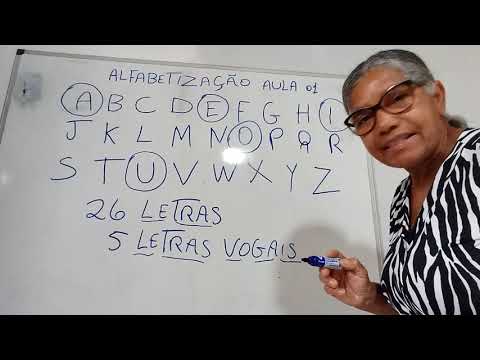 ALFABETIZAÇÃO AULA 01
A B C D E F G H I
J K L M N O P Q R
S T U V W X Y Z
26 LETRAS
5 LETRAS VOGAIS